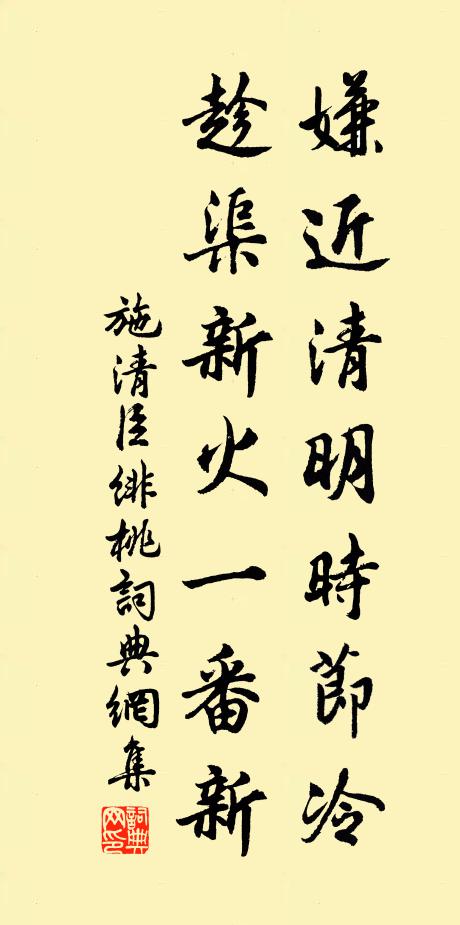 嫌近清明時節冷
趁渠新火一番新
施清臣緋桃詞典網集
詞典
网印